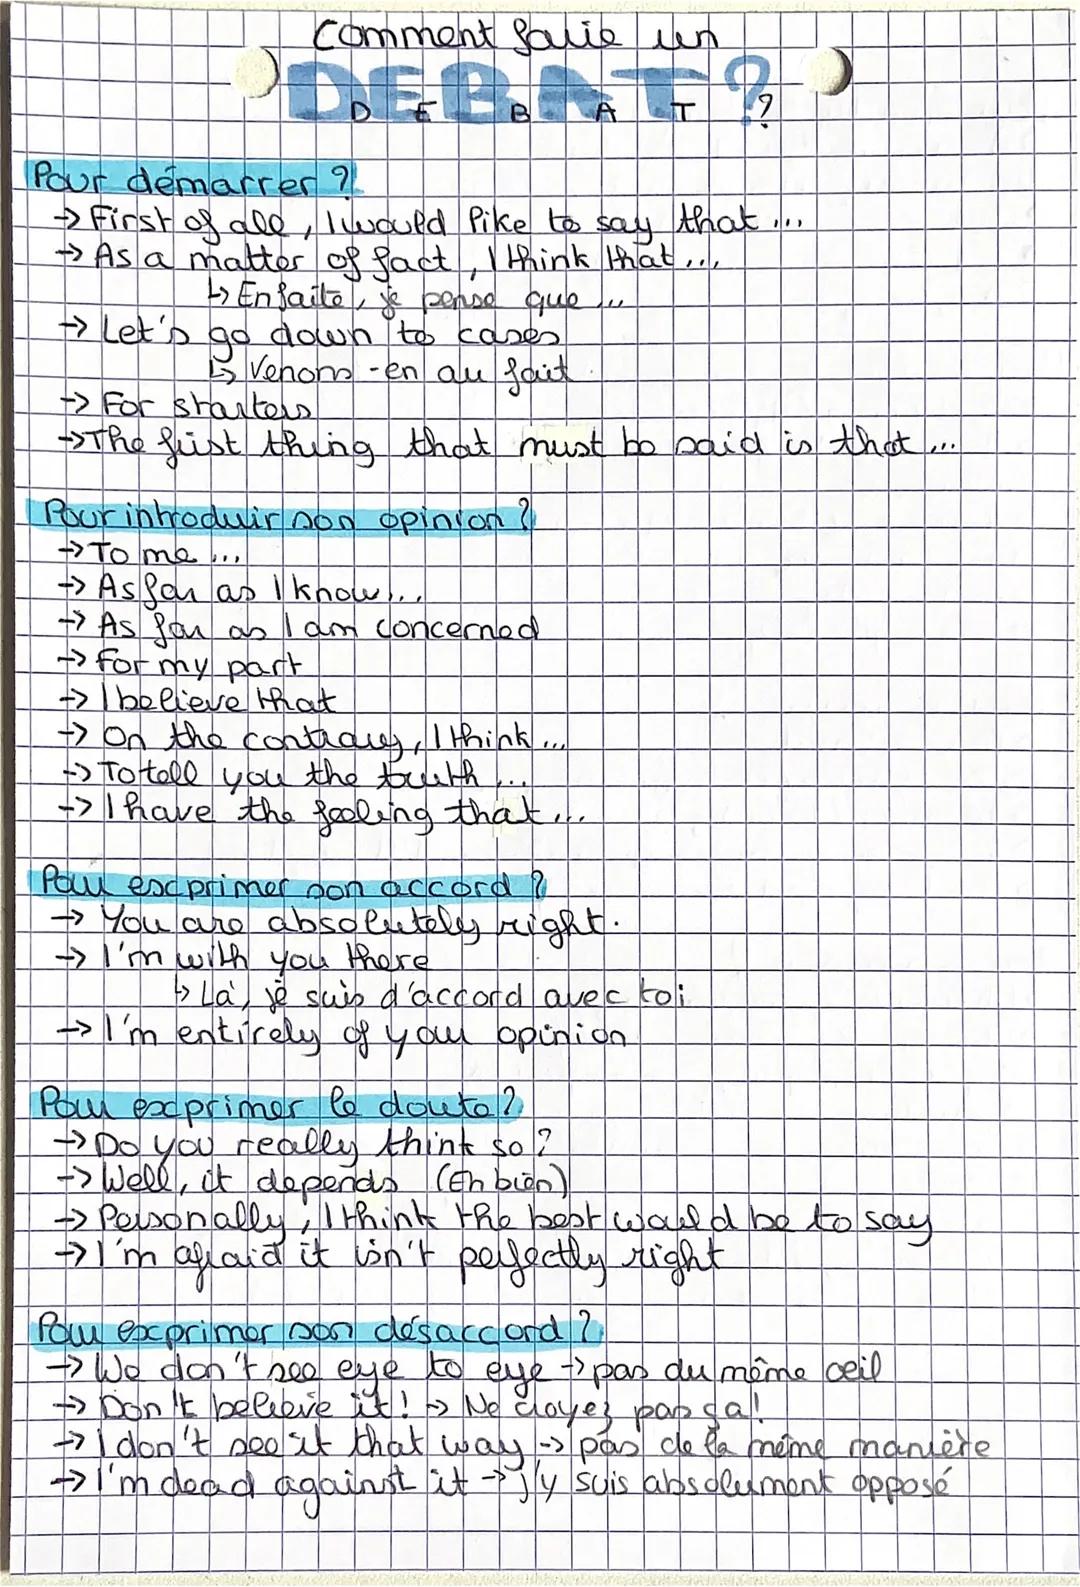 Comment faire un
DEBAT ?
D E B A T ?
Pour démarrer ?
→ First of all, I would like to say that ...
→ As a matter of fact, I think that ...
↳ En faite, je pense que ...
→ Let's go down to cases
↳ Venons-en au fait.
→ For starters
→ The first thing that must be said is that ...
Pour introduir son opinion ?
→ To me ...
→ As far as I know ...
→ As far as I am concerned
→ For my part
→ I believe that
→ On the contrary, I think ...
→ To tell you the truth ...
→ I have the feeling that ...
Pour exprimer son accord ?
→ You are absolutely right.
→ I'm with you there
↳ Là, je suis d'accord avec toi
→ I'm entirely of your opinion
Pour exprimer le doute ?
→ Do you really think so ?
→ Well, it depends (Eh bien)
→ Personally, I think the best would be to say
→ I'm afraid it isn't perfectly right
Pour exprimer son désaccord ?
→ We don't see eye to eye → pas du même oeil
→ Don't believe it! → Ne croyez pas ça!
→ I don't see it that way → pas de la même manière
→ I'm dead against it → j'y suis absolument opposé